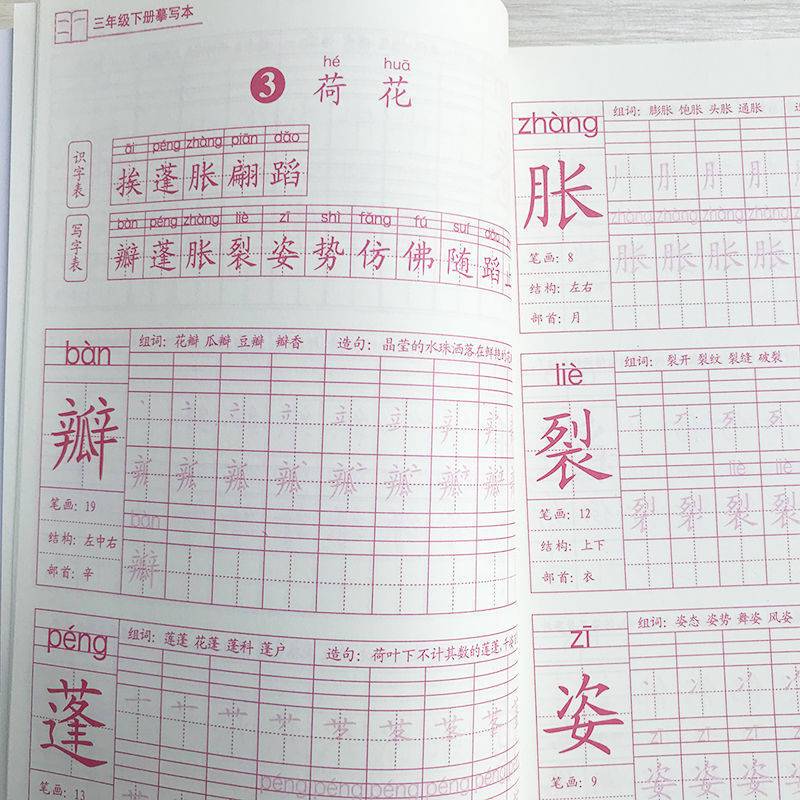 三年级下册摹写本
hé huā
3 荷花
识字表
āi péng zhàng piān dǎo
挨 蓬 胀 翩 蹈
写字表
bàn péng zhàng liè zī shì fǎng fú suí dǎo
瓣 蓬 胀 裂 姿 势 仿 佛 随 蹈
bàn
组词：花瓣 瓜瓣 豆瓣 瓣香 造句：晶莹的水珠洒落在鲜艳的
瓣
笔画：19
结构：左中右
部首：辛
bàn
瓣
péng
组词：莲蓬 花蓬 蓬科 蓬户 造句：荷叶下不计其数的莲蓬，千
蓬
笔画：13
péng péng péng péng péng
zhàng
组词：膨胀 饱胀 头胀 通胀
胀
zhàng zhàng zhàng zhàng
胀 胀 胀 胀
笔画：8
结构：左右
部首：月
liè
组词：裂开 裂纹 裂缝 破裂
裂
liè liè
裂 裂 裂 裂
笔画：12
结构：上下
部首：衣
zī
组词：姿态 姿势 舞姿 风姿
姿
zī zī zī
姿 姿 姿
笔画：9